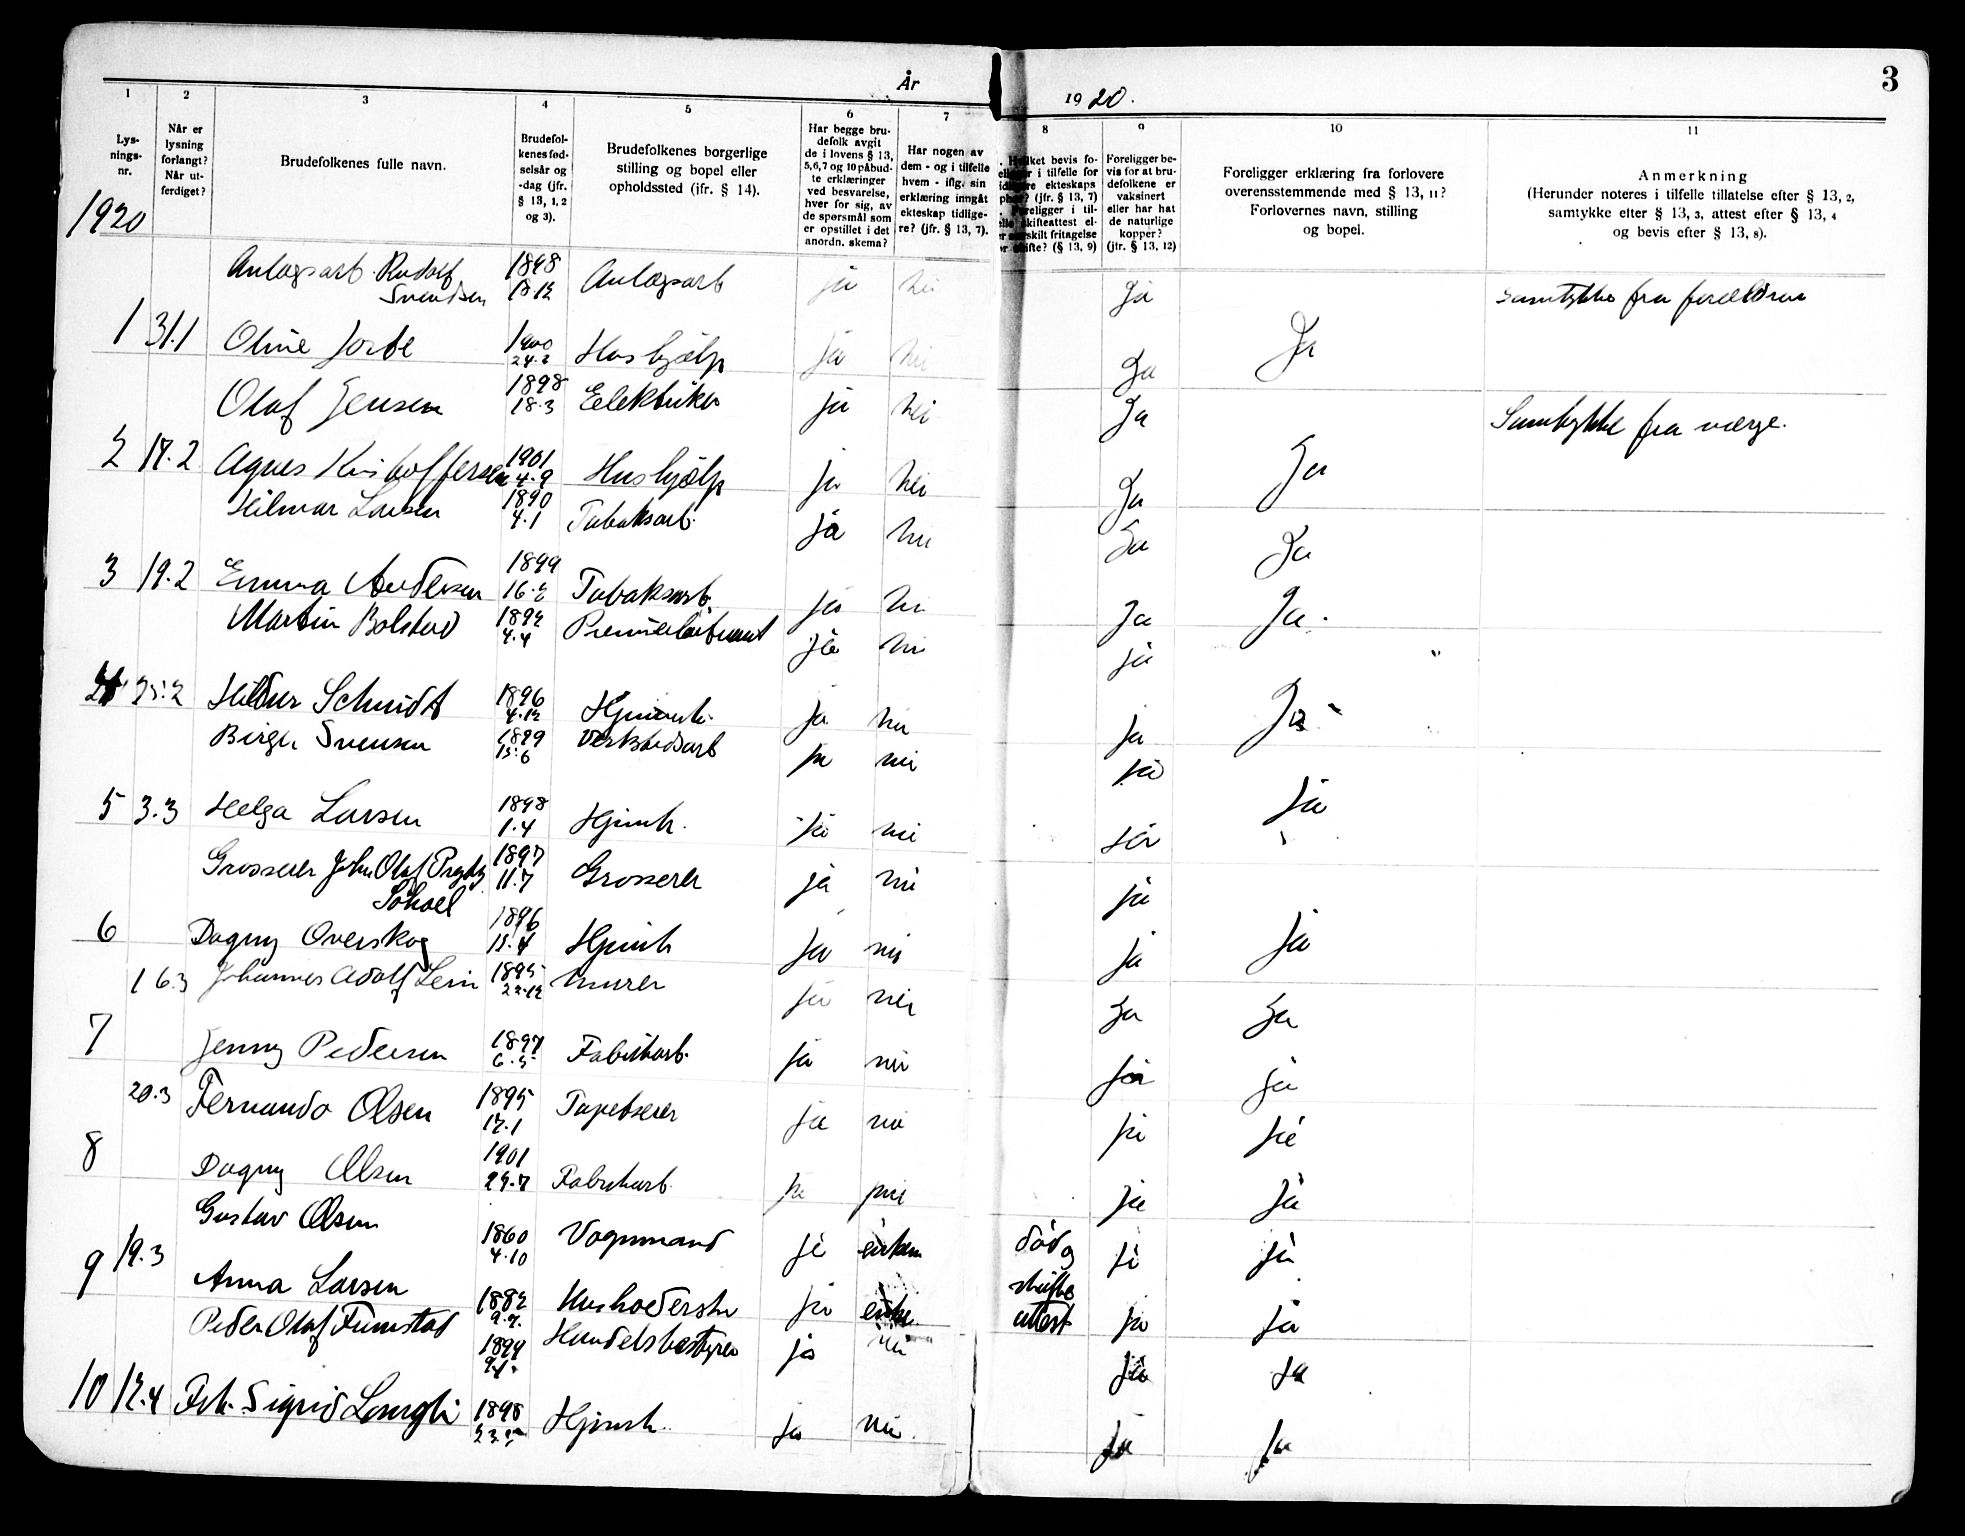 År 1920.
3
1 2 3 4 5 6 7 8 9 10 11
Lys-
nings-
nr.
Når er
lysning
forlangt?
Når ut-
ferdiget?
Brudefolkenes fulle navn.
Brudefol-
kenes fød-
selsår og
-dag (jfr.
§ 13, 1, 2
og 3).
Brudefolkenes borgerlige
stilling og bopel eller
opholdssted (jfr. § 14).
Har begge bru-
defolk avgit
de i lovens § 13,
5,6,7 og 10 påbud-
te erklæringer
ved besvarelse,
hver for sig, av
de spørsmål som
er opstillet i det
anordn. skema?
Har nogen av
dem - og i tilfelle
hvem - iflg. sin
erklæring inngåt
ekteskap tidlige-
re? (jfr. § 13, 7).
bevis fo-
i tilfelle for
ekteskaps
(jfr. § 13, 7)
Foreligger i til-
skifteattest el-
særskilt fritagelse
skifte? (§ 13, 9)
Foreligger be-
vis for at bru-
defolkene er
vaksinert
eller har hat
de naturlige
kopper?
(jfr. § 13, 12)
Foreligger erklæring fra forlovere
overensstemmende med § 13, 11?
Forlovernes navn, stilling
og bopel.
Anmerkning
(Herunder noteres i tilfelle tillatelse efter § 13, 2,
samtykke efter § 13, 3, attest efter § 13, 4
og bevis efter § 13, 8).
1920
Anlægsarb. Rudolf Svendsen 1898 18.12 Anlægsarb ja nei Ja Samtykke fra forældrene
1 31.1 Oline 1900 24.2 Hushjælp ja nei Ja Ja
Olaf Jensen 1898 18.3 Eelektriker ja nei Ja Samtykke fra værge.
2 17.2 Agnes Kristoffersen 1901 4.9 Hushjælp ja nei Ja Ja
Hilmar Larsen 1890 4.1 Tobaksarb. ja nei Ja Ja
3 19.2 Emma Andersen 1899 16.2 Tobaksarb. ja nei Ja Ja.
Martin Bolstad 1892 4.4 Premierløitnant ja nei ja "
4 25.2 Hildur Schmidt 1896 4.12 Hjemmev. ja nei ja Ja
Birger Svensen 1899 15.6 Verkstedsarb ja nei ja
5 3.3 Helga Larsen 1898 1.4 Hjemv. ja nei ja ja
Grosserer John Olaf 1897 11.7 Grosserer ja nei ja
6 Dagny Overskog 1896 Hjemv ja nei ja ja
16.3 Johannes Adolf 1895 22.12 Murer ja nei Ja Ja
7 Jenny Pedersen 1897 6.5 Fabrikarb. ja nei ja ja
20.3 Fernando Olsen 1895 17.1 Tapetserer ja nei ja ja
8 Dagny Olsen 1901 29.7 Fabrikarb. ja nei ja ja
Gustav Olsen 1860 4.10 Vognmand ja enkem død og ja ja
skifte
9 19.3 Anna Larsen 1882 9.7. Husholderske ja enke attest ja ja
Peder Olaf Fumstad 1899 Handelsbestyrer ja nei ja ja
10 12.4 Frk. Sigrid 1898 Hjemv. ja nei. ja ja